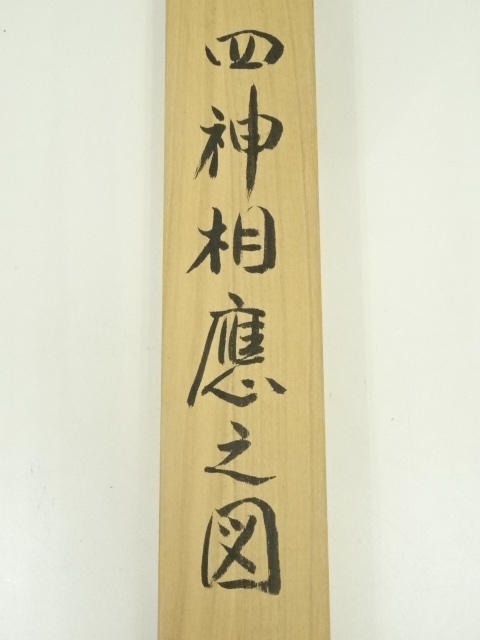 四神相應之図